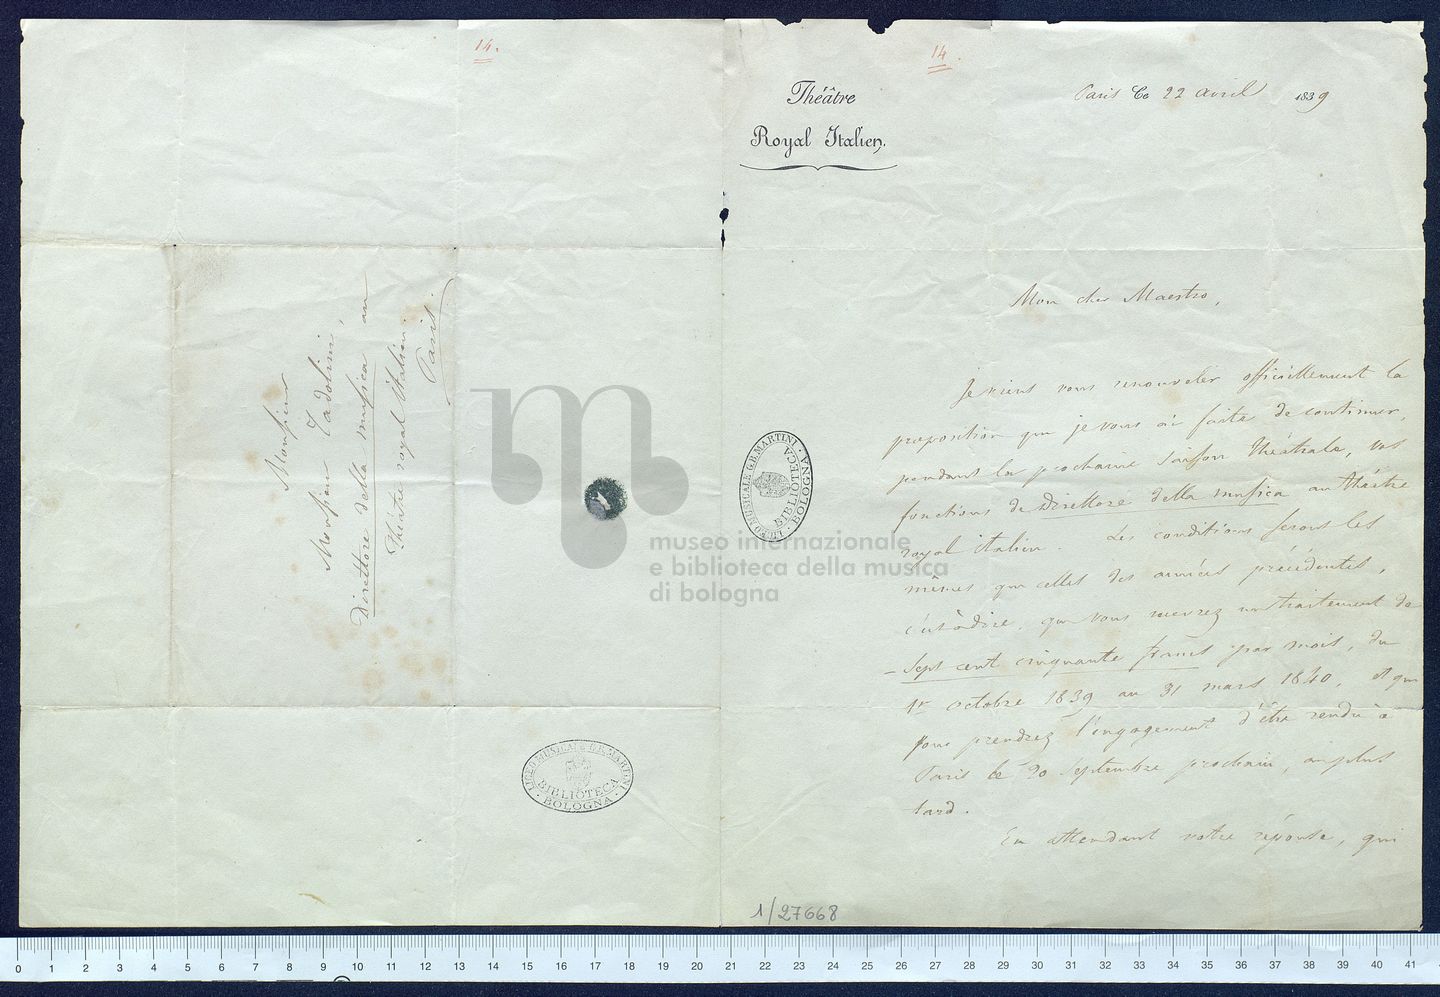 14.
Monsieur
Monsieur Tadolini,
Direttore della musica au
Théâtre royal Italien.
Paris.
LICEO MUSICALE G.B. MARTINI
BIBLIOTECA
· BOLOGNA ·
14.
Théâtre
Royal Italien.
Paris Ce 22 avril 1839
Mon cher Maestro,
Je viens vous renouveler officiellement la
proposition que je vous ai faite de continuer,
pendant la prochaine saison théâtrale, vos
fonctions de Direttore della musica au théâtre
royal italien. Les conditions seront les
mêmes que celles des années précédentes,
c'est à dire, que vous recevrez un traitement de
– Sept cent cinquante francs par mois, du
1er octobre 1839 au 31 mars 1840, et que
vous prendrez l'engagement d'être rendu à
Paris le 20 septembre prochain, au plus
tard.
En attendant votre réponse, qui
LICEO MUSICALE G.B. MARTINI
BIBLIOTECA
· BOLOGNA ·
museo internazionale
e biblioteca della musica
di bologna
1/27668
0 1 2 3 4 5 6 7 8 9 10 11 12 13 14 15 16 17 18 19 20 21 22 23 24 25 26 27 28 29 30 31 32 33 34 35 36 37 38 39 40 41